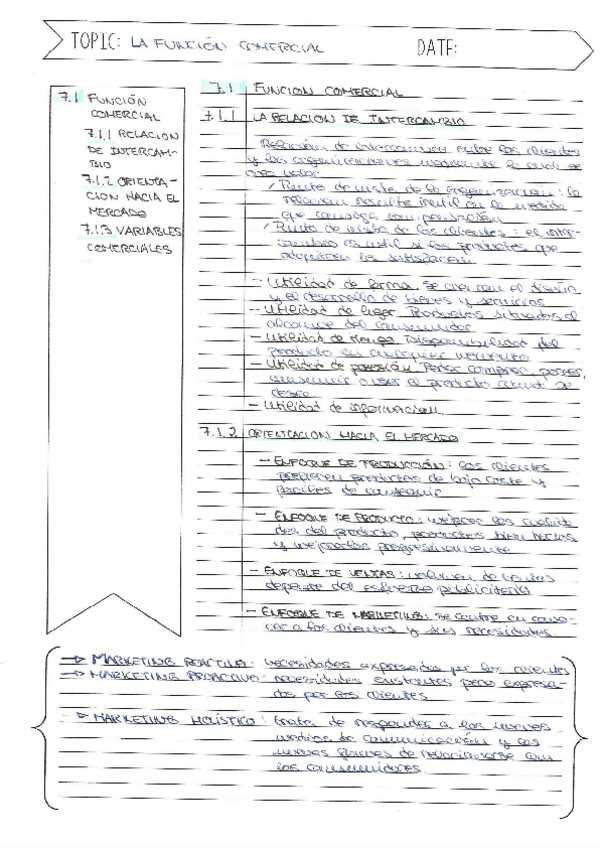 TOPIC: LA FUNCIÓN COMERCIAL DATE:
7.1 FUNCIÓN
COMERCIAL
7.1.1 RELACION
DE INTERCAM-
BIO
7.1.2 ORIENTA-
CION HACIA EL
MERCADO
7.1.3 VARIABLES
COMERCIALES
7.1 FUNCION COMERCIAL
7.1.1 LA RELACION DE INTERCAMBIO
Relación de intercambio entre los clientes
y las organizaciones mediante la cual se
crea valor
/ Punto de vista de la organizacion: la
relacion resulta util en la medida
que consiga compensación
/ Punto de vista de los clientes: el inter-
cambio es util si los productos que
adquieren les satisfacen
- Utilidad de forma. Se crea con el diseño
y el desarrollo de bienes y servicios
- Utilidad de lugar Productos situados al
alcance del consumidor
- Utilidad de tiempo Disponibilidad del
producto en cualquier momento
- Utilidad de posesión Poder comprar, poseer,
consumir o usar el producto cuando se
desee
- Utilidad de informacion
7.1.2 ORIENTACION HACIA EL MERCADO
- ENFOQUE DE PRODUCCIÓN: Los clientes
prefieren productos de bajo coste y
faciles de conseguir
- ENFOQUE DE PRODUCTO: mejorar las cualida
des del producto, productos bien hechos
y mejorarlos progresivamente
- ENFOQUE DE VENTAS: volumen de ventas
depende del esfuerzo publicitario
- ENFOQUE DE MARKETING: Se centra en cono-
cer a los clientes y sus necesidades
→ MARKETING REACTIVO: necesidades expresadas por los clientes
→ MARKETING PROACTIVO: necesidades existentes pero expresa-
das por los clientes
→ MARKETING HOLÍSTICO: trata de responder a los nuevos
medios de comunicación y las
nuevas formas de relacionarse con
los consumidores